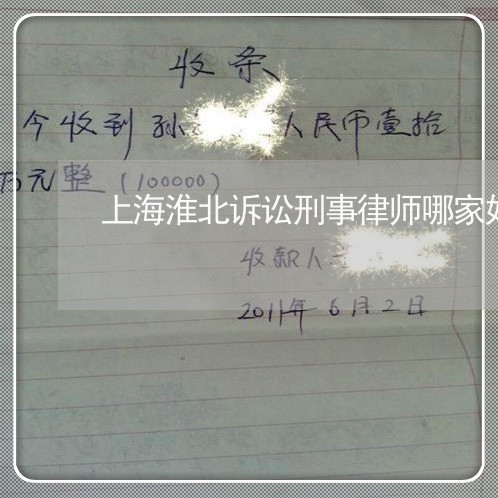 收条
今收到孙 人民币壹拾
万元整（100000）
上海淮北诉讼刑事律师哪家好
收款人
2011年6月2日